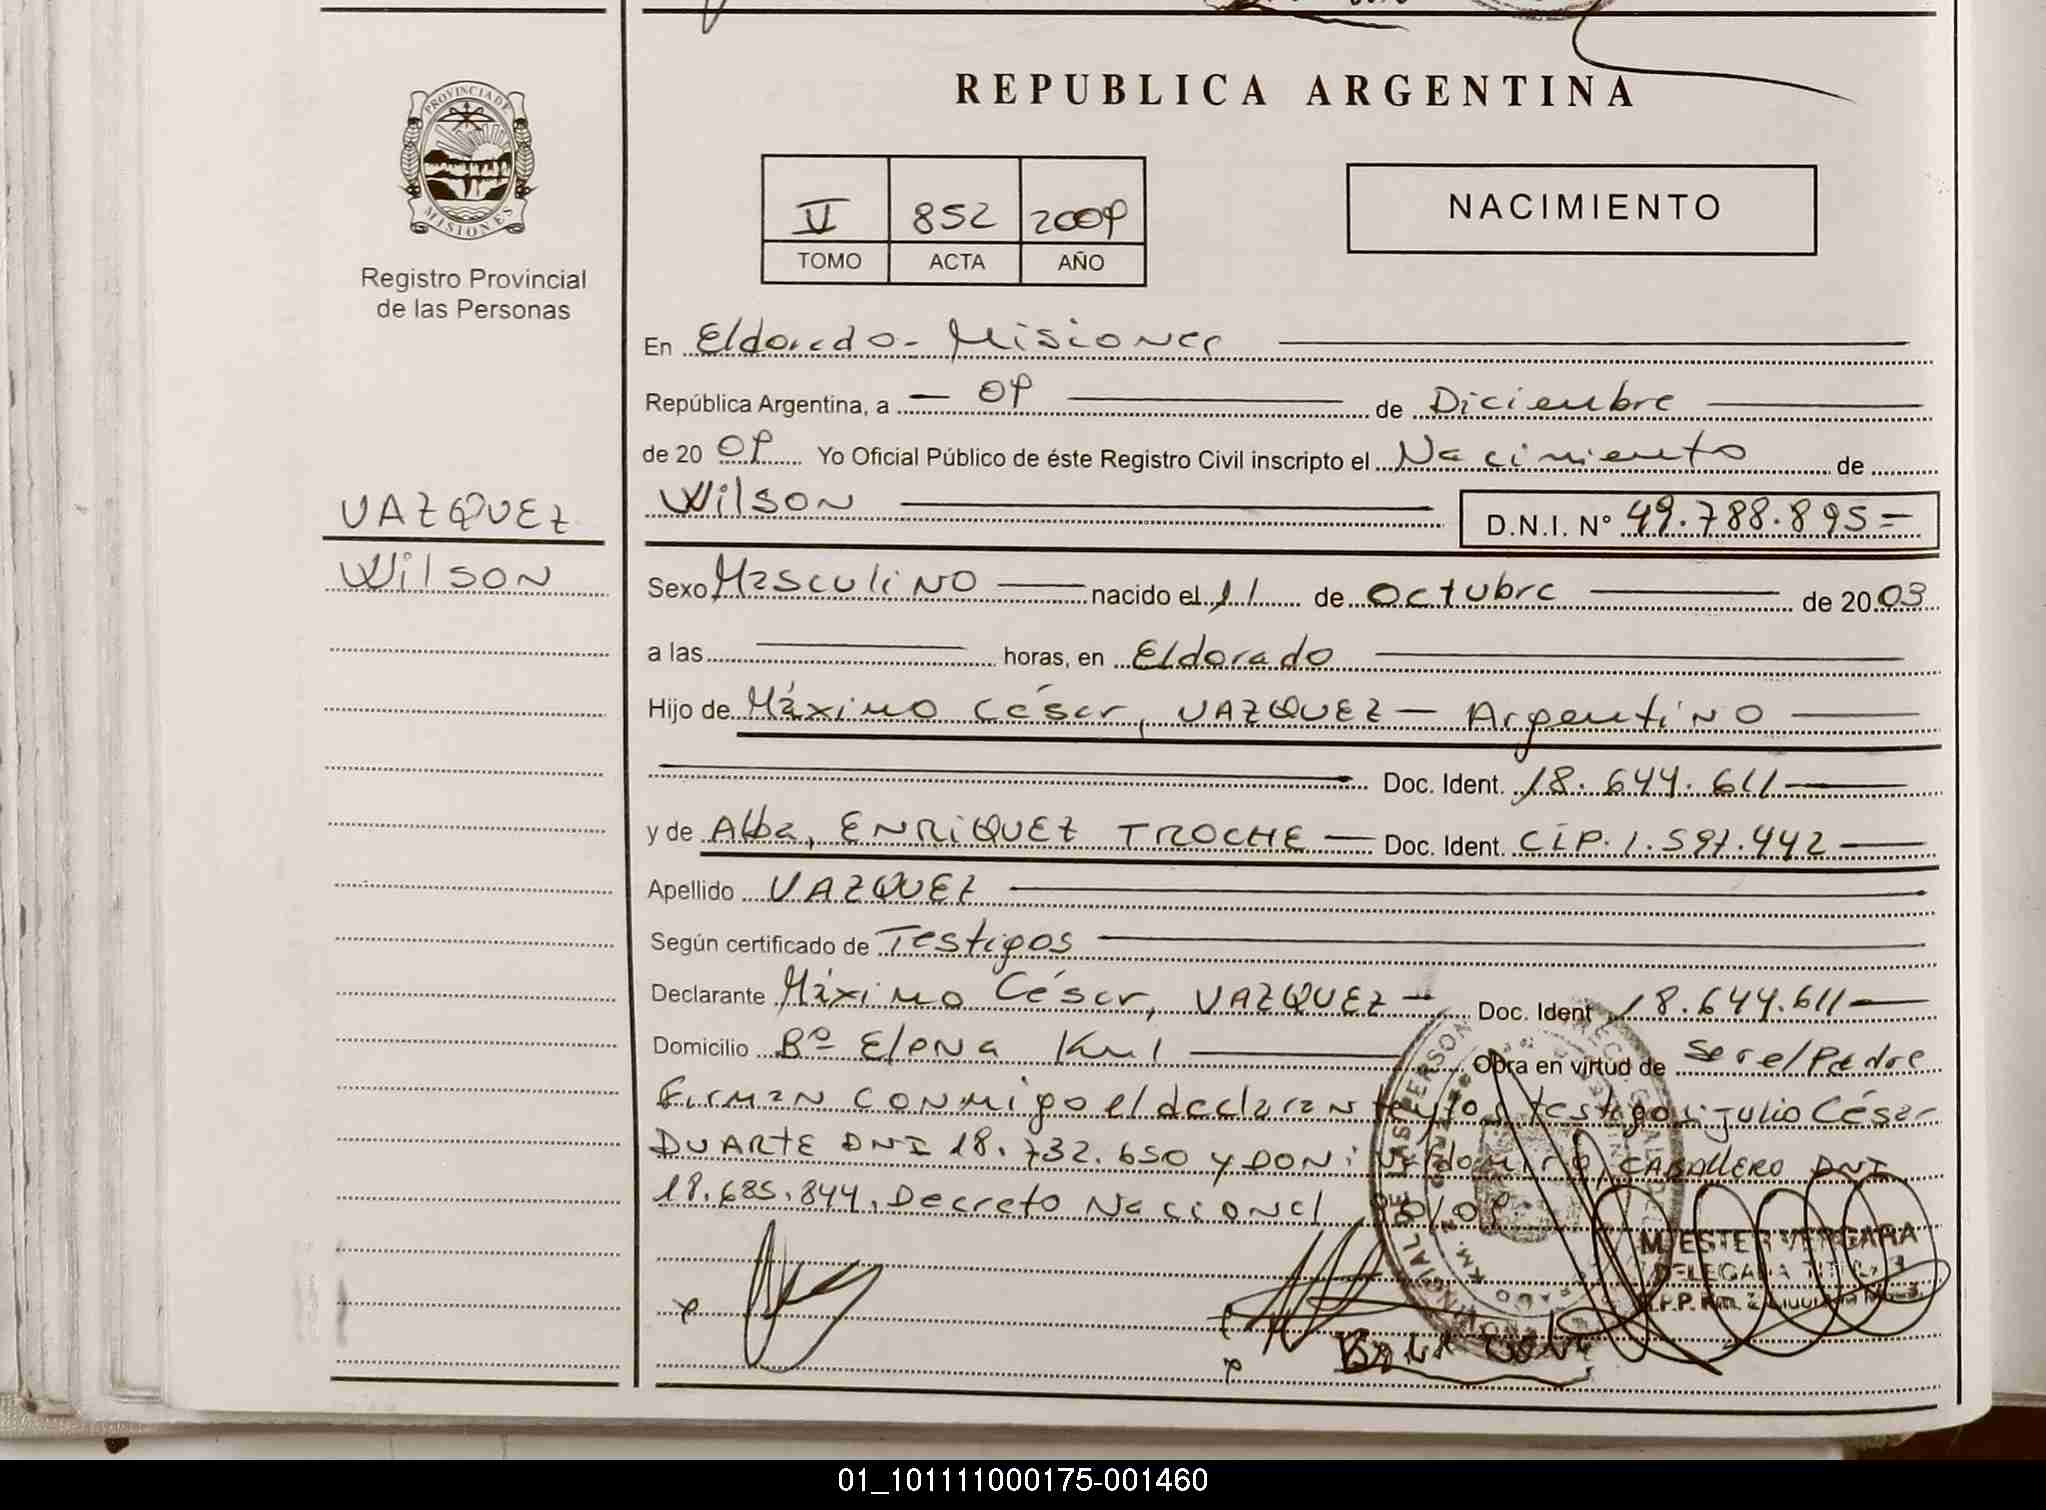 REPUBLICA ARGENTINA
PROVINCIA DE
MISIONES
Registro Provincial
de las Personas
V 852 2009
TOMO ACTA AÑO
NACIMIENTO
En Eldorado - Misiones
República Argentina, a 09 de Diciembre
de 20 09 Yo Oficial Público de éste Registro Civil inscripto el Nacimiento de
VAZQUEZ
Wilson
Wilson D.N.I. N° 49.788.895=
Sexo Masculino nacido el 11 de Octubre de 20 03
a las horas, en Eldorado
Hijo de Máximo César, VAZQUEZ - Argentino
Doc. Ident. 18.644.611
y de Alba, ENRIQUEZ TROCHE Doc. Ident. CIP. 1.591.442
Apellido VAZQUEZ
Según certificado de Testigos
Declarante Máximo César, VAZQUEZ Doc. Ident 18.644.611
Domicilio Bº Elena Obra en virtud de ser el Padre
Firman conmigo el declarante y los testigos: Julio César
DUARTE DNI 18.732.650 y DON: CABALLERO DNI
18.685.844. Decreto Nacional
M. ESTER VERGARA
DELEGADA TITULAR
01_101111000175-001460